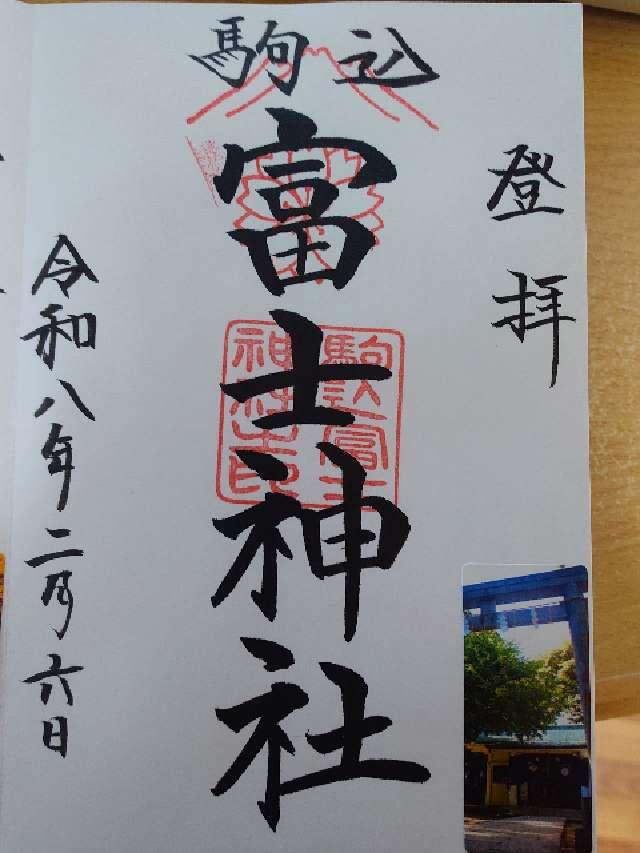 登拝
駒込
富士神社
駒込富士
神社之印
令和八年二月六日